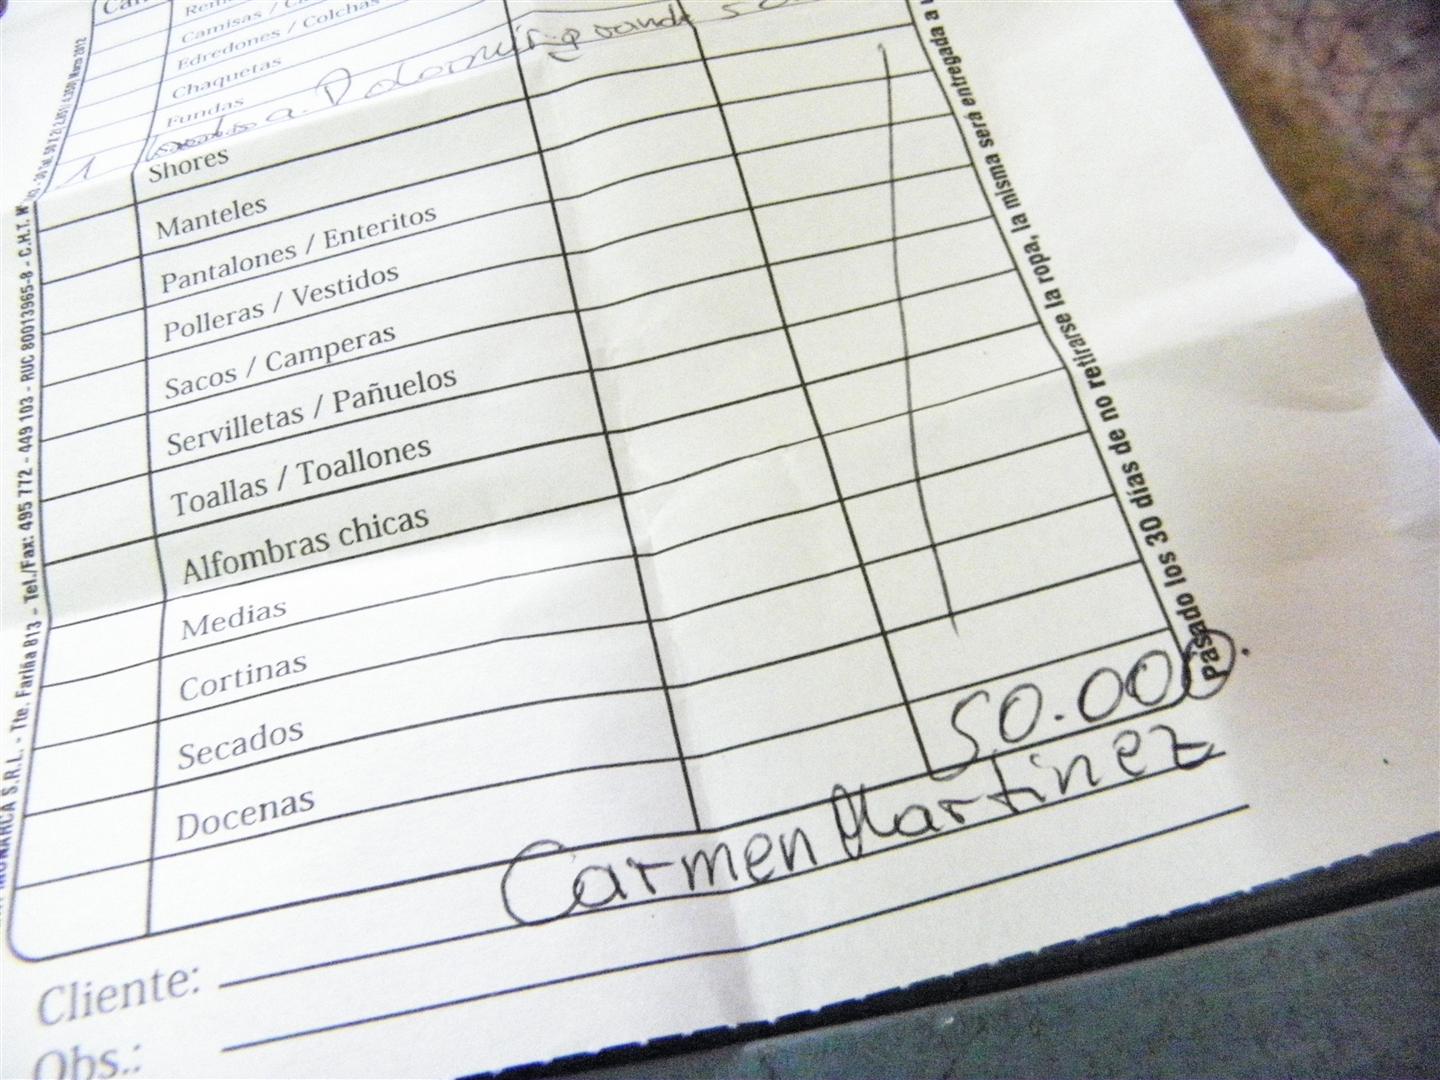 Camisas /
Edredones / Colchas
Chaquetas
Fundas
1 grande 50.
Shores
Manteles
Pantalones / Enteritos
Polleras / Vestidos
Sacos / Camperas
Servilletas / Pañuelos
Toallas / Toallones
Alfombras chicas
Medias
Cortinas
Secados
Docenas
50.000.
Cliente: Carmen Martinez
Obs.:
MONARCA S.R.L. - Tte. Fariña 813 - Tel./Fax: 495 772 - 449 103 - RUC 80013965-8 - C.H.T. Nº Marzo 2012
Pasado los 30 días de no retirarse la ropa, la misma será entregada a